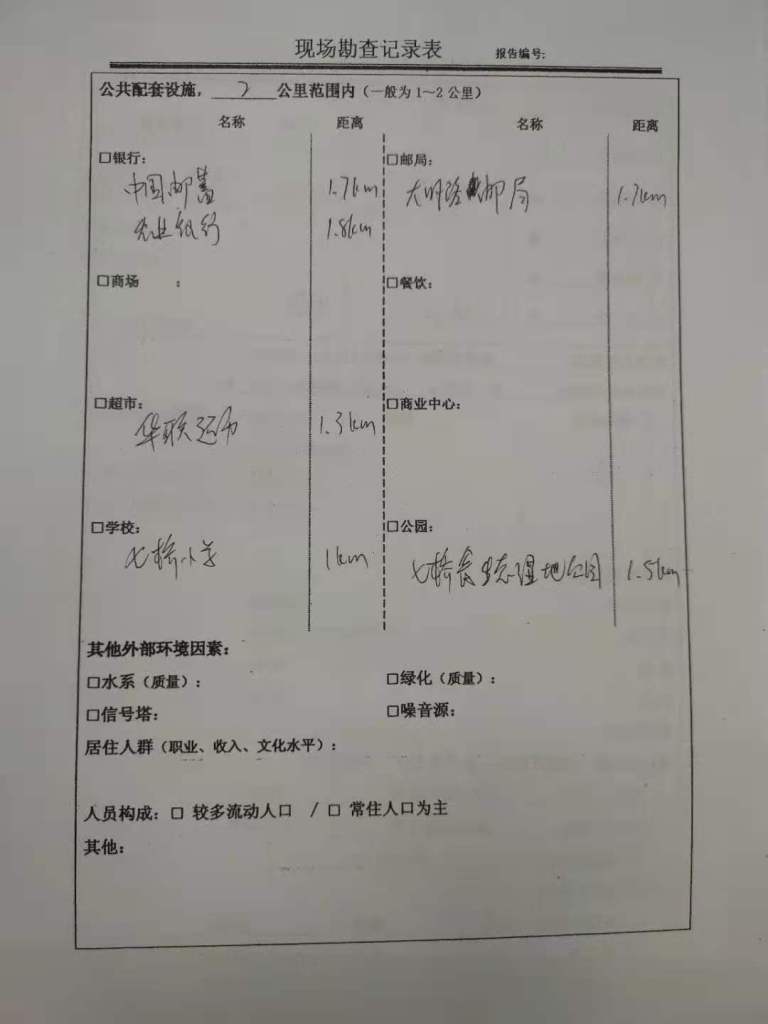 现场勘查记录表 报告编号:
公共配套设施，2公里范围内（一般为1～2公里）
名称 距离 名称 距离
□银行： □邮局：
中国邮蓄 1.7km 大明路邮局 1.7km
兴业银行 1.8km
□商场 ： □餐饮：
□超市： □商业中心：
华联超市 1.3km
□学校： □公园：
七桥小学 1km 七桥瓮生态湿地公园 1.5km
其他外部环境因素：
□水系（质量）： □绿化（质量）：
□信号塔： □噪音源：
居住人群（职业、收入、文化水平）：
人员构成：□ 较多流动人口 / □ 常住人口为主
其他：